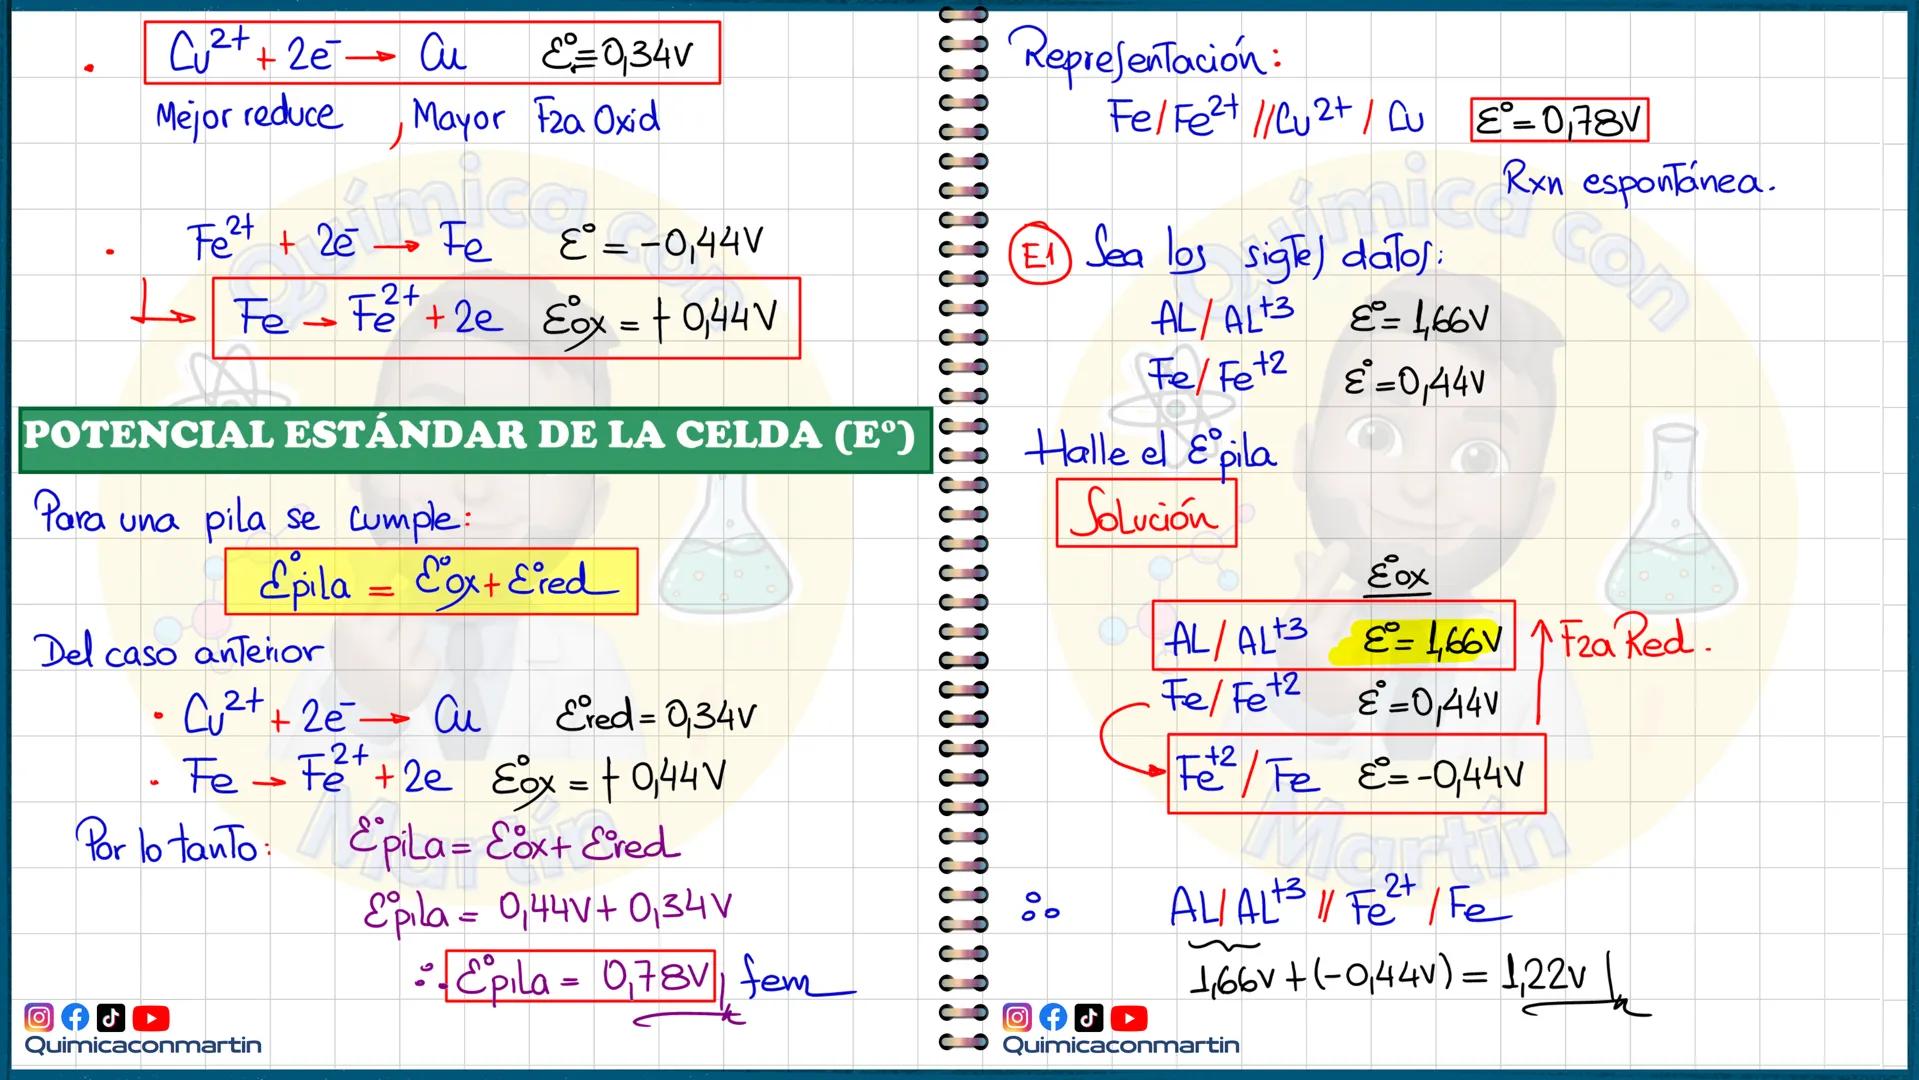 • Cu²⁺ + 2e⁻ → Cu ε° = 0,34V
Mejor reduce, Mayor Fza Oxid
• Fe²⁺ + 2e⁻ → Fe ε° = -0,44V
Fe → Fe²⁺ + 2e ε°ox = +0,44V
POTENCIAL ESTÁNDAR DE LA CELDA (E°)
Para una pila se cumple:
ε°pila = ε°ox + ε°red
Del caso anterior
• Cu²⁺ + 2e⁻ → Cu ε°red = 0,34V
• Fe → Fe²⁺ + 2e ε°ox = +0,44V
Por lo tanto: ε°pila = ε°ox + ε°red
ε°pila = 0,44V + 0,34V
∴ ε°pila = 0,78V fem
Quimicaconmartin
Representación:
Fe/Fe²⁺//Cu²⁺/Cu ε° = 0,78V
Rxn espontánea.
E1 Sea los sigtes datos:
AL/AL⁺³ ε° = 1,66V
Fe/Fe⁺² ε° = 0,44V
Halle el ε°pila
Solución
ε°ox
AL/AL⁺³ ε° = 1,66V ↑ Fza Red.
Fe/Fe⁺² ε° = 0,44V
Fe⁺²/Fe ε° = -0,44V
∴ AL/AL⁺³//Fe²⁺/Fe
1,66V + (-0,44V) = 1,22V
Quimicaconmartin
Química con
Martin
Química con
Martin